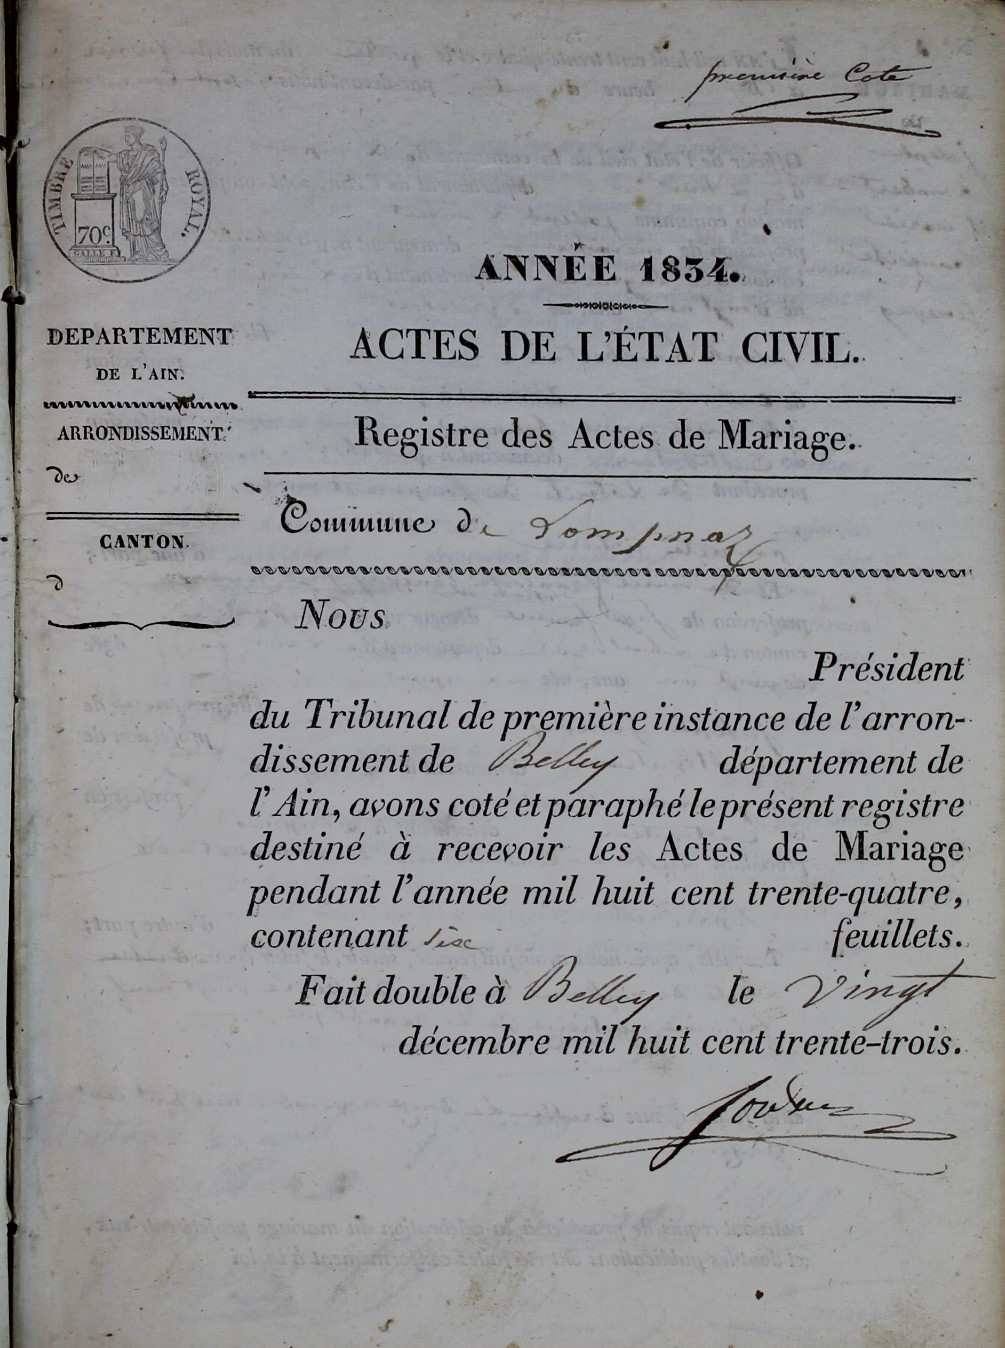 première Cote
TIMBRE ROYAL.
70c.
ANNÉE 1834.
DEPARTEMENT
DE L'AIN.
ACTES DE L'ÉTAT CIVIL.
ARRONDISSEMENT
de
Registre des Actes de Mariage.
CANTON
d
Commune de Lompnaz
Nous
Président
du Tribunal de première instance de l'arron-
dissement de Belley département de
l'Ain, avons coté et paraphé le présent registre
destiné à recevoir les Actes de Mariage
pendant l'année mil huit cent trente-quatre,
contenant six feuillets.
Fait double à Belley le Vingt
décembre mil huit cent trente-trois.